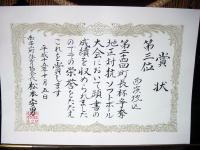 賞状
第三位
西濱地区
第二十四回町長杯争奪
地区対抗ソフトボール
大会において頭書の
成績を収められました
のでその栄誉をたたえ
これを賞します
平成十五年十月五日
松本安男